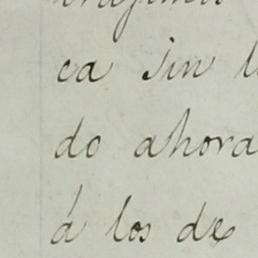 ca sin
do ahora
á los de